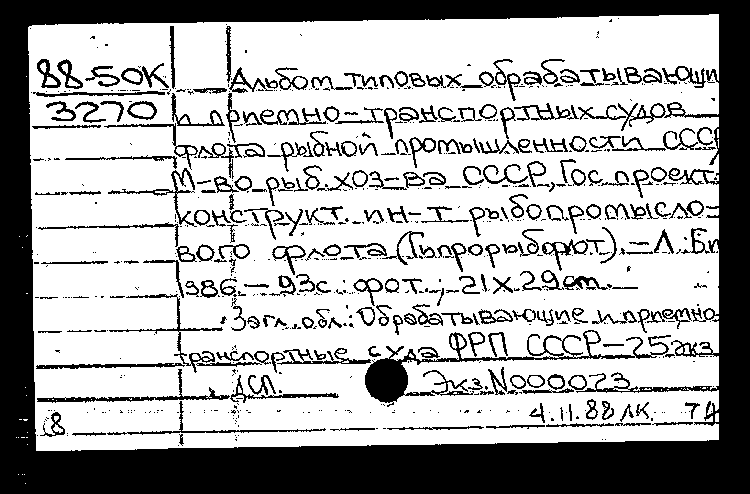 88-50К Альбом типовых обрабатывающи
3270 и приемно-транспортных судов
флота рыбной промышленности СССР
М-во рыб. хоз-ва СССР, Гос проект.
конструкт. ин-т рыбопромысло-
вого флота (Гипрорыбфлот). – Л.: Б.и
1986. – 93с.: фот.; 21х29 см.
Загл. обл.: Обрабатывающие и приемно
транспортные суда ФРП СССР – 25 экз
ДСП. Экз. N000023
8 4.11.88 ЛК.